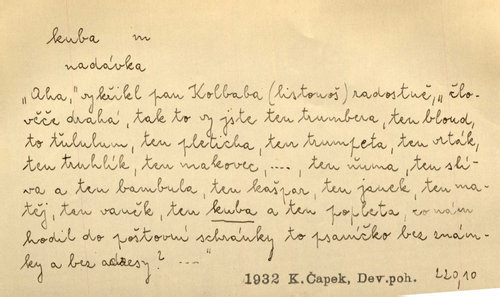 kuba m
nadávka
„Aha," vykřikl pan Kolbaba (listonoš) radostně, „člo-
věče drahá, tak to vy jste ten trumbera, ten bloud,
to ťululum, ten pleticha, ten trumpeta, ten vrták,
ten truhlík, ten makovec, ...., ten ňuma, ten slí-
va a ten bambula, ten kašpar, ten janek, ten ma-
těj, ten vaněk, ten kuba a ten popleta, co nám
hodil do poštovní schránky to psaníčko bez znám-
ky a bez adresy? ...."
1932 K.Čapek, Dev.poh. 220,10